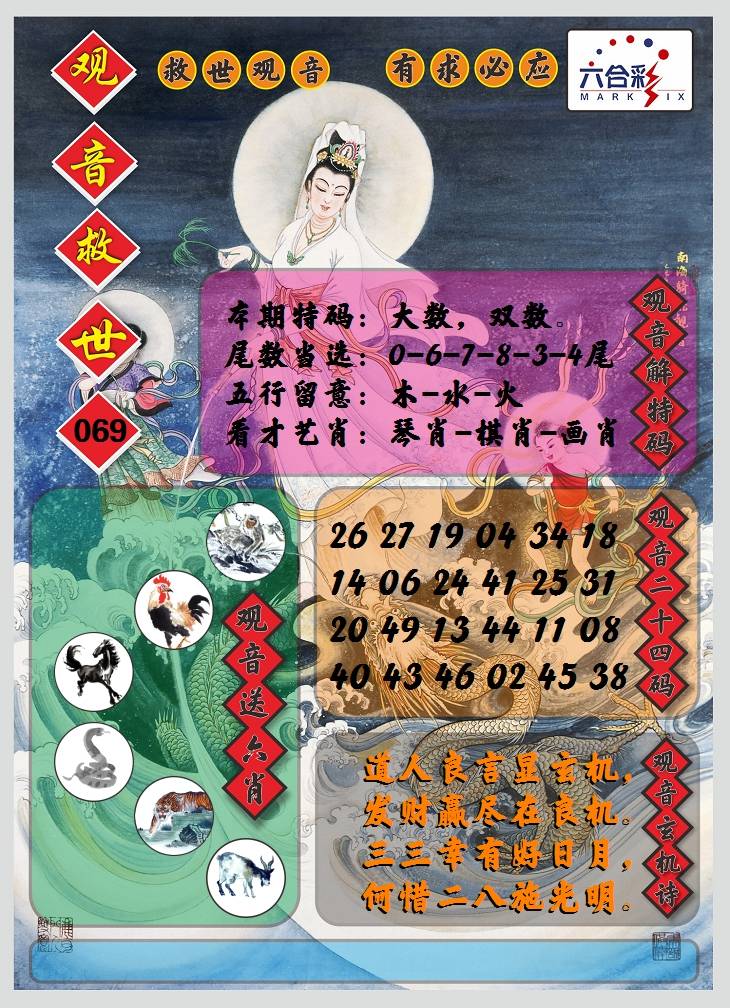 观音救世
069
救世观音 有求必应
六合彩
MARK SIX
观音解特码
本期特码：大数，双数。
尾数当选：0-6-7-8-3-4尾
五行留意：木-水-火
看才艺肖：琴肖-棋肖-画肖
观音二十四码
26 27 19 04 34 18
14 06 24 41 25 31
20 49 13 44 11 08
40 43 46 02 45 38
观音送六肖
观音玄机诗
道人良言显玄机，
发财赢尽在良机。
三三幸有好日月，
何惜二八施光明。